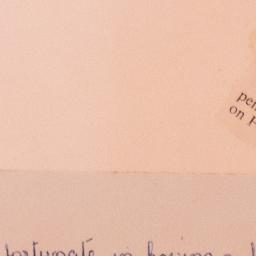 pen
on
fortunate in having a